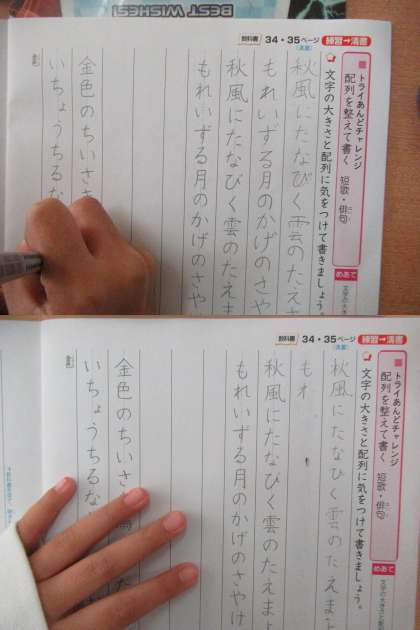 BEST WISHES!
教科書 34・35ページ 練習→清書
トライあんどチャレンジ
配列を整えて書く 短歌・俳句
めあて
文字の大きさと配列に気をつけて書きましょう。
秋風にたなびく雲のたえま
もれいずる月のかげのさや
秋風にたなびく雲のたえま
もれいずる月のかげのさや
金色のちいさき
いちょうちるな
教科書 34・35ページ 練習→清書
トライあんどチャレンジ
配列を整えて書く 短歌・俳句
めあて
文字の大きさと配列に気をつけて書きましょう。
秋風にたなびく雲のたえま
もオ
秋風にたなびく雲のたえまよ
もれいずる月のかげのさやけ
金色のちいさき
いちょうちるな